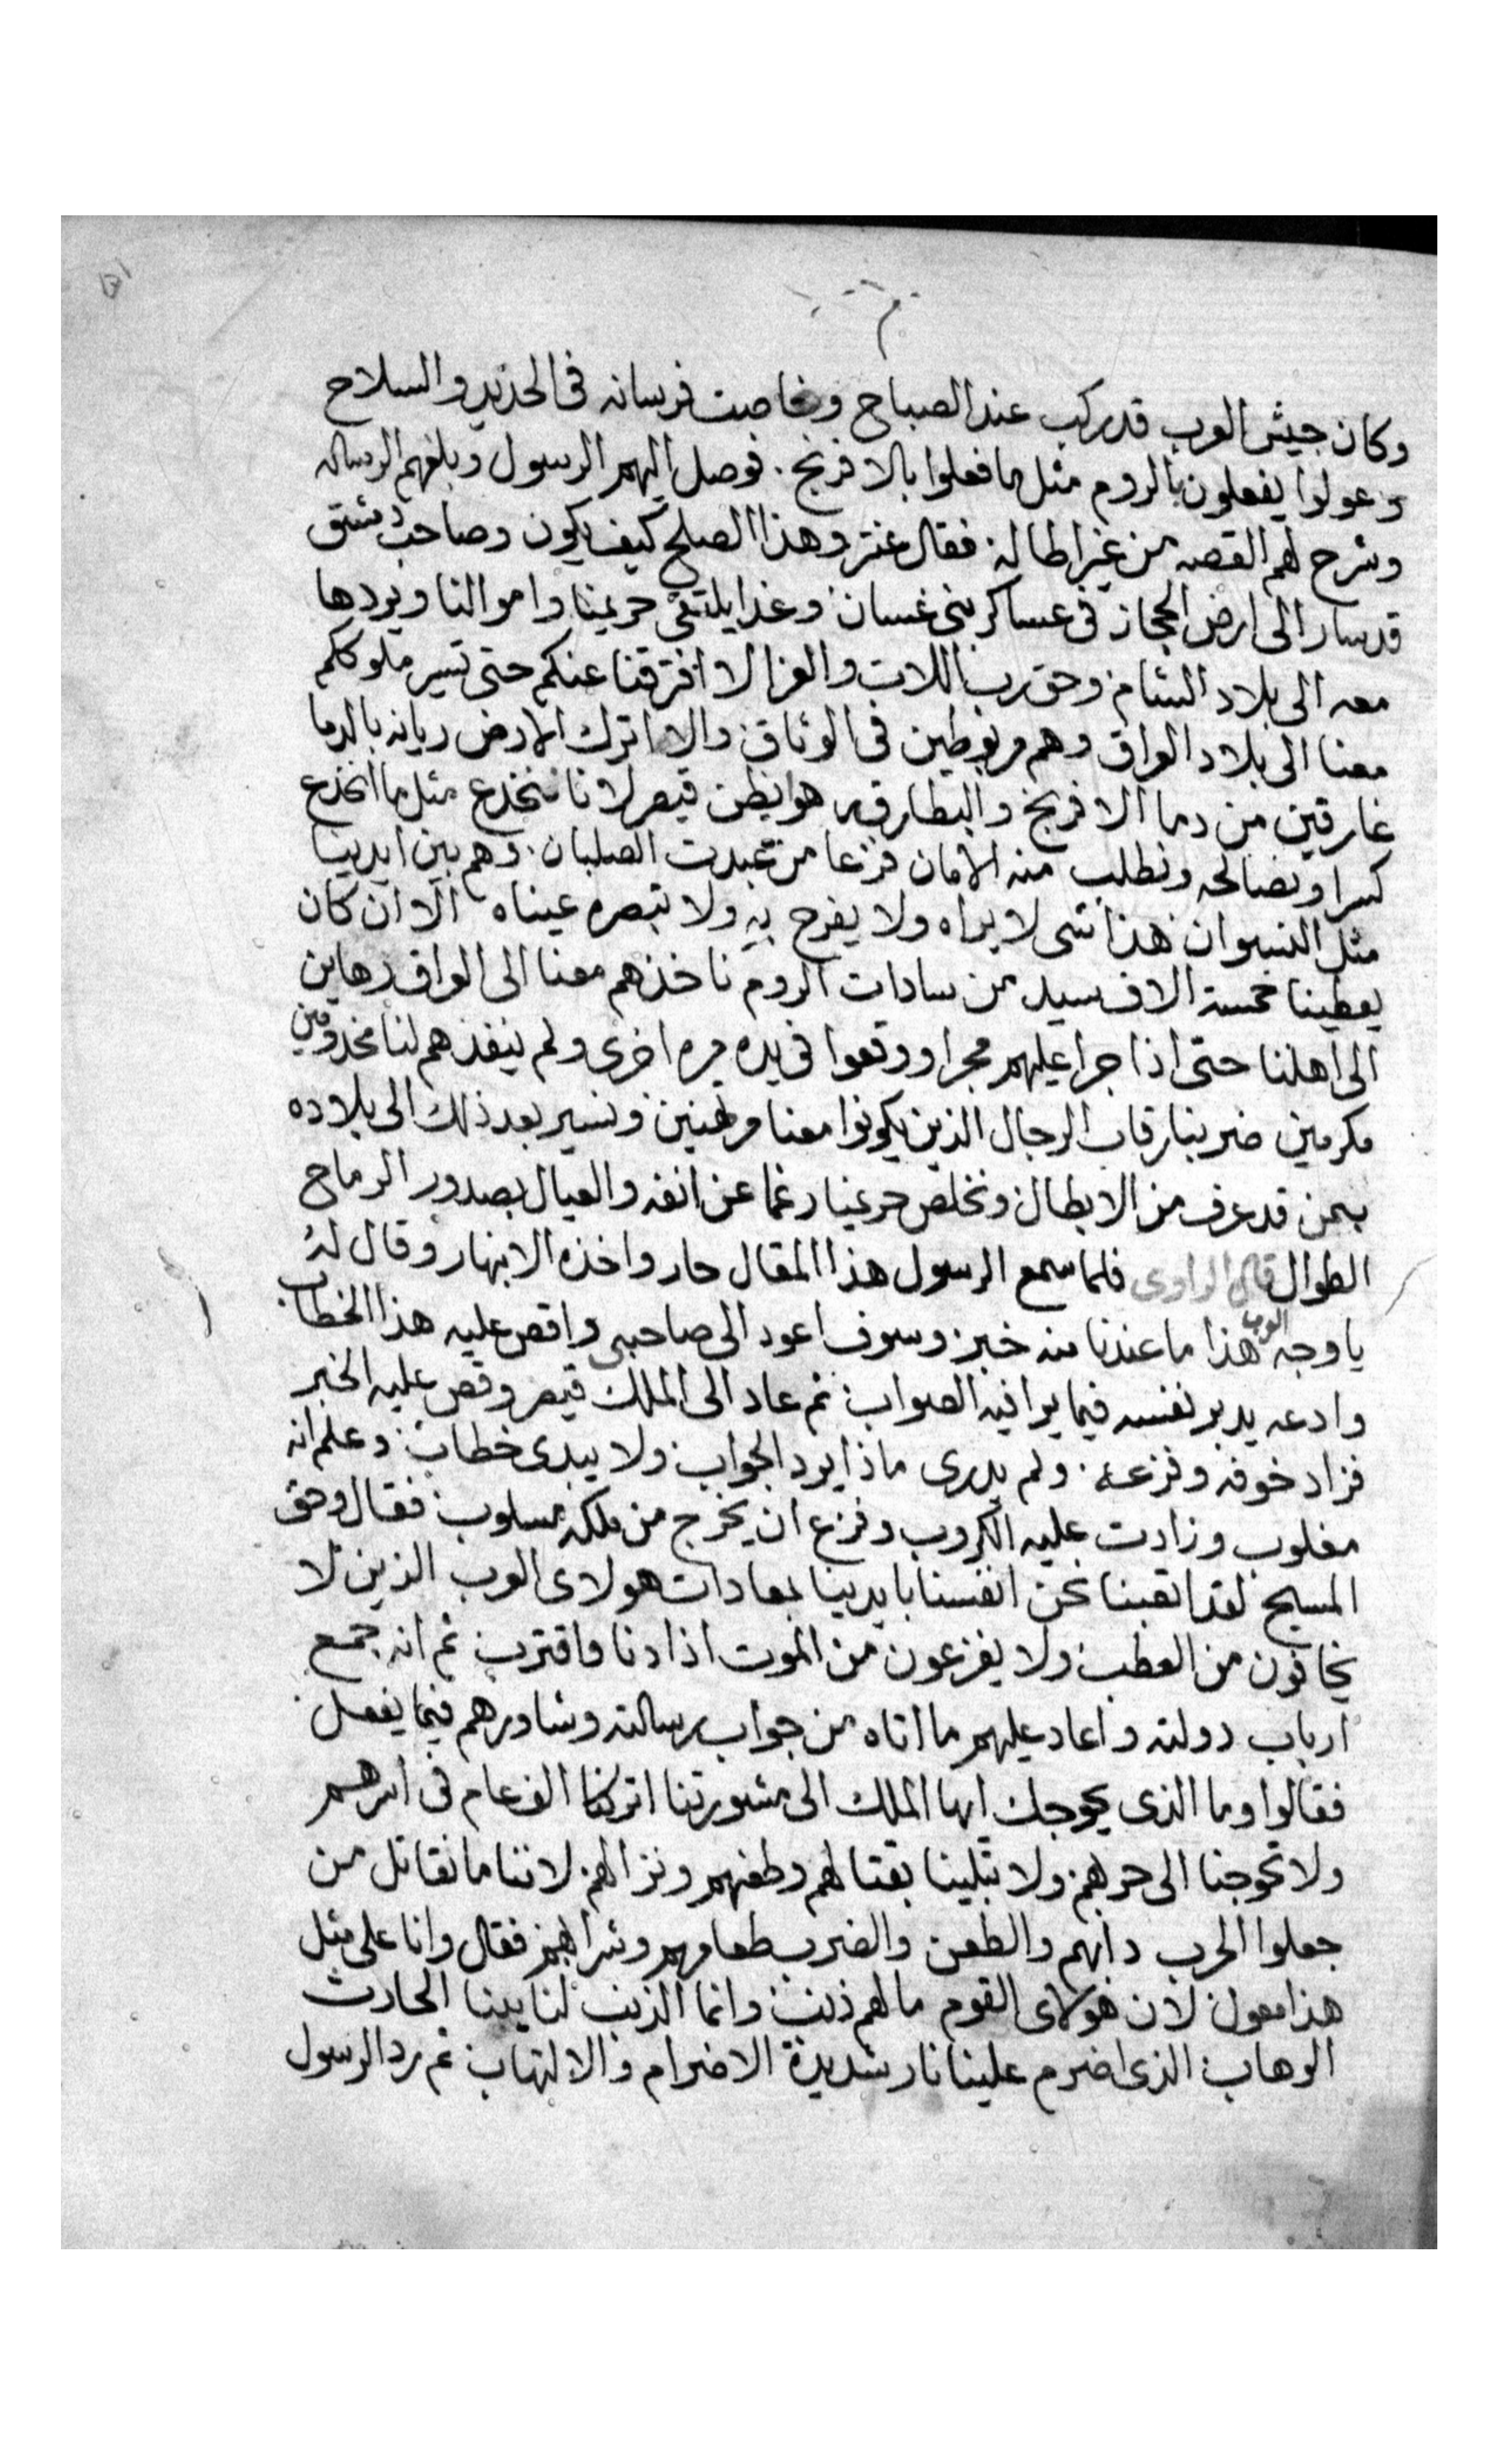 وكان جيش العرب قد ركب عند الصباح وغاصت فرسانه فى الحديد والسلاح
وعولوا يفعلون بالروم مثل ما فعلوا بالافرنج. فوصل اليهم الرسول وبلغهم الرساله
وشرح لهم القصه من غير اطاله فقال عنتر وهذا الصلح كيف يكون وصاحب دمشق
قد سار الى ارض الحجاز فى عساكر بنى غسان وغدا يلتقى حريمنا واموالنا ويردها
معه الى بلاد الشام وحق رب اللات والعزا لا افترقنا عنكم حتى تسير ملوككم
معنا الى بلاد العراق وهم مربوطين فى الوثاق والا اترك الارض ريانه بالدما
غارقين من دما الافرنج والبطارقه هو ايظن قيصر لاننا ننخدع مثل ما انخدع
كسرا ونصالحه ونطلب منه الامان فزعا من عبدت الصلبان. وهم بين ايدينا
مثل النسوان هذا شى لا يراه ولا يفرح به ولا تبصره عيناه الا ان كان
يعطينا خمسة الاف سيد من سادات الروم ناخذهم معنا الى العراق رهاين
الى اهلنا حتى اذا جرا عليهم مجرا ووقعوا فى يده مره اخرى ولم ينفذهم لنا مخدومين
مكرمين ضربنا رقاب الرجال الذين يكونوا معنا مرتهنين ونسير بعد ذلك الى بلاده
بمن قد عرف من الابطال ونخلص حريمنا رغما عن انفه والعيال بصدور الرماح
الطوال قال الراوى فلما سمع الرسول هذا المقال حار واخذه الانبهار وقال له
يا وجه العرب هذا ما عندنا منه خبر وسوف اعود الى صاحبى واقص عليه هذا الخطاب
وادعه يدبر نفسه فيما يرا فيه الصواب ثم عاد الى الملك قيصر وقص عليه الخبر
فزاد خوفه وفزعه. ولم يدرى ماذا يرد الجواب ولا يبدى خطاب وعلم انه
مغلوب وزادت عليه الكروب وفزع ان يخرج من ملكه مسلوب فقال وحق
المسيح لقد اتعبنا نحن انفسنا بايدينا بمعادات هولاى العرب الذين لا
يخافون من العطب ولا يفزعون من الموت اذا دنا واقترب ثم انه جمع
ارباب دولته واعاد عليهم ما اتاه من جواب رسالته وشاورهم فيما يفعل
فقالوا وما الذى يحوجك ايها الملك الى مشورتنا اتركنا الف عام فى اسرهم
ولا تحوجنا الى حربهم ولا تبلينا بقتالهم وطعنهم ونزالهم لاننا ما نقاتل من
جعلوا الحرب دابهم والطعن والضرب طعامهم وشرابهم فقال وانا على مثل
هذا معول لان هولاى القوم ما لهم ذنب وانما الذنب لنايبنا الحارث
الوهاب الذى اضرم علينا نار شديدة الاضرام والالتهاب ثم رد الرسول